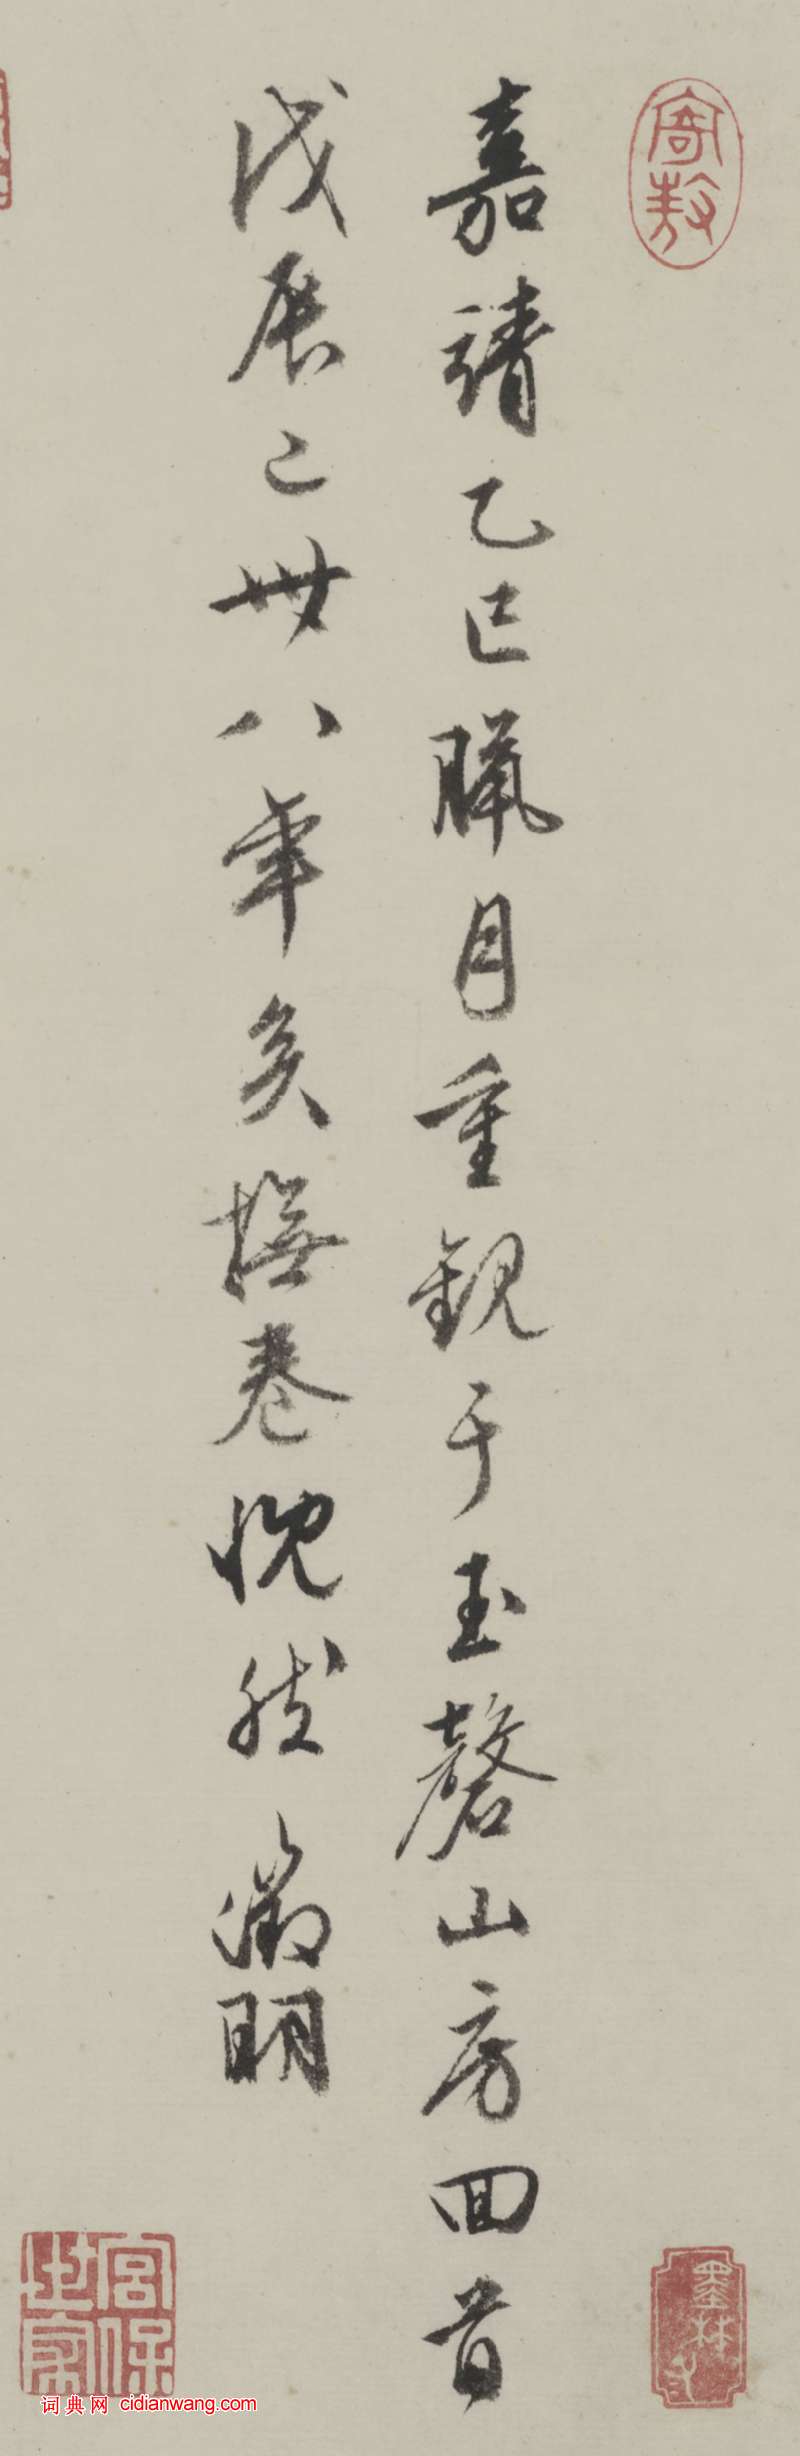 寄敖
嘉靖乙巳臘月重觀于玉磬山房回首
戊辰已卅八年矣撫卷怳然 徵明
墨林子
宮保世家
词典网 cidianwang.com